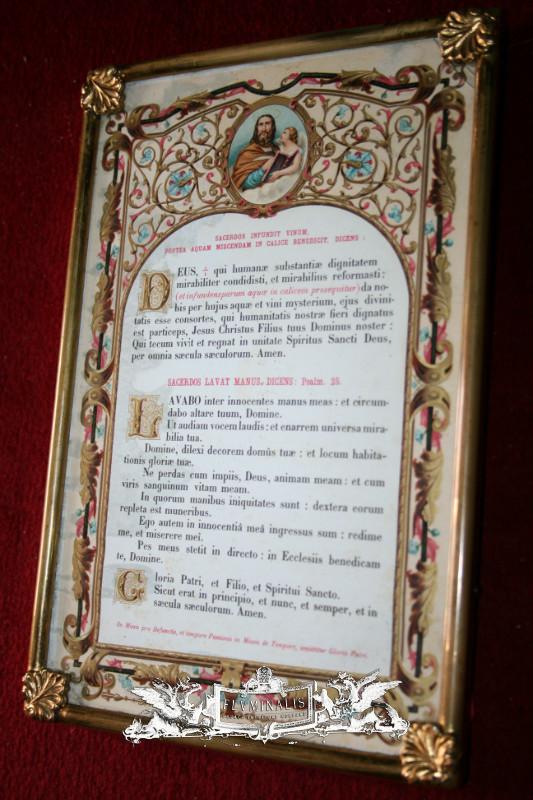 SACERDOS INFUNDIT VINUM,
POSTEA AQUAM MISCENDAM IN CALICE BENEDICIT, DICENS :
DEUS, ☩ qui humanæ substantiæ dignitatem
mirabiliter condidisti, et mirabilius reformasti :
(et infundens parum aquæ in calicem prosequitur) da no-
bis per hujus aquæ et vini mysterium, ejus divini-
tatis esse consortes, qui humanitatis nostræ fieri dignatus
est particeps, Jesus Christus Filius tuus Dominus noster :
Qui tecum vivit et regnat in unitate Spiritus Sancti Deus,
per omnia sæcula sæculorum. Amen.
SACERDOS LAVAT MANUS, DICENS : Psalm. 25.
LAVABO inter innocentes manus meas : et circum-
dabo altare tuum, Domine.
Ut audiam vocem laudis : et enarrem universa mira-
bilia tua.
Domine, dilexi decorem domûs tuæ : et locum habita-
tionis gloriæ tuæ.
Ne perdas cum impiis, Deus, animam meam : et cum
viris sanguinum vitam meam.
In quorum manibus iniquitates sunt : dextera eorum
repleta est muneribus.
Ego autem in innocentiâ meâ ingressus sum : redime
me, et miserere mei.
Pes meus stetit in directo : in Ecclesiis benedicam
te, Domine.
Gloria Patri, et Filio, et Spiritui Sancto.
Sicut erat in principio, et nunc, et semper, et in
sæcula sæculorum. Amen.
In Missis pro Defunctis, et tempore Passionis in Missis de Tempore, omittitur Gloria Patri.
FLUMINALIS